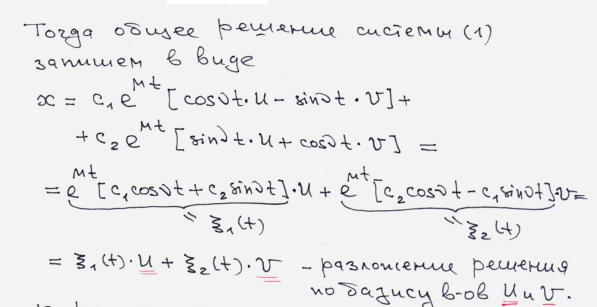 Тогда общее решение системы (1)
запишем в виде
x = c₁e^{μt}[cosνt·u − sinνt·v] +
+ c₂e^{μt}[sinνt·u + cosνt·v] =
= e^{μt}[c₁cosνt + c₂sinνt]·u + e^{μt}[c₂cosνt − c₁sinνt]v =
" ξ₁(t) " ξ₂(t)
= ξ₁(t)·u + ξ₂(t)·v – разложение решения
по базису в-ов u и v.